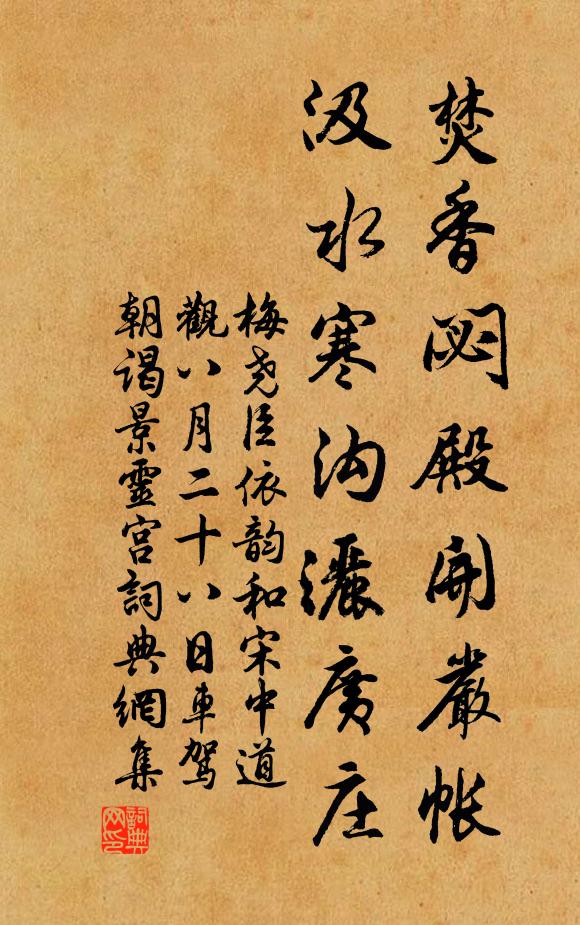 焚香閟殿開嚴帳
汲水寒沟灑廣庄
梅尧臣依韵和宋中道
觀八月二十八日車駕
朝谒景靈宫詞典網集
詞典
网印